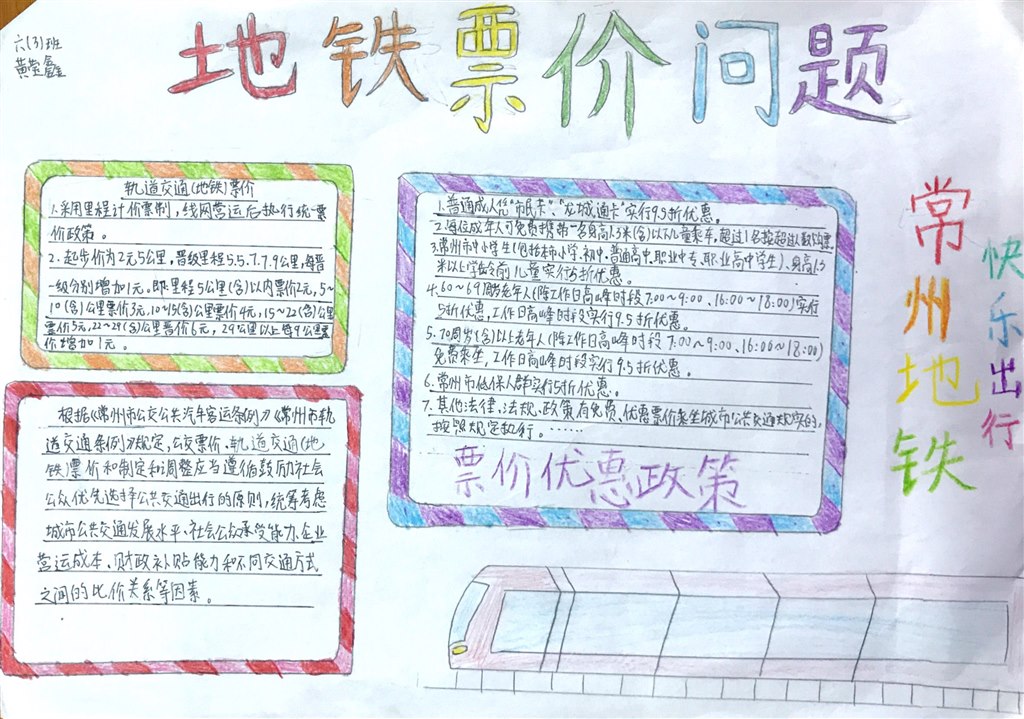 六(3)班
黄莹鑫
地铁票价问题
轨道交通(地铁)票价
1.采用里程计价票制,线网营运后执行统一票
价政策。
2.起步价为2元5公里,晋级里程5.5.7.7.9公里,每晋
一级分别增加1元。即:里程5公里(含)以内票价2元,5~
10(含)公里票价3元,10~15(含)公里票价4元,15~22(含)公里
票价5元,22~29(含)公里票价6元,29公里以上每9公里票
价增加1元。
根据《常州市公交公共汽车客运条例》《常州市轨
道交通条例》规定,公交票价、轨道交通(地
铁)票价和制定和调整应当遵循鼓励社会
公众优先选择公共交通出行的原则,统筹考虑
城市公共交通发展水平、社会公众承受能力、企业
营运成本、财政补贴能力和不同交通方式
之间的比价关系等因素。
1.普通成人凭"市民卡"、"龙城通卡"实行9.5折优惠。
2.每位成年人可免费携带一名身高1.3米(含)以下儿童乘车,超过1名按超过人数购票
3.常州市中小学生(包括本市小学、初中、普通高中、职业中专、职业高中学生)、身高1.3
米以上学龄前儿童实行5折优惠。
4.60~69周岁老年人(除工作日高峰时段7:00~9:00、16:00~18:00)实行
5折优惠,工作日高峰时段实行9.5折优惠。
5.70周岁(含)以上老年人(除工作日高峰时段 7:00~9:00、16:00~18:00)
免费乘坐,工作日高峰时段实行9.5折优惠。
6.常州市低保人群实行5折优惠。
7.其他法律、法规、政策有免费、优惠票价乘坐城市公共交通规定的,
按照规定执行。……
票价优惠政策
常州地铁
快乐出行